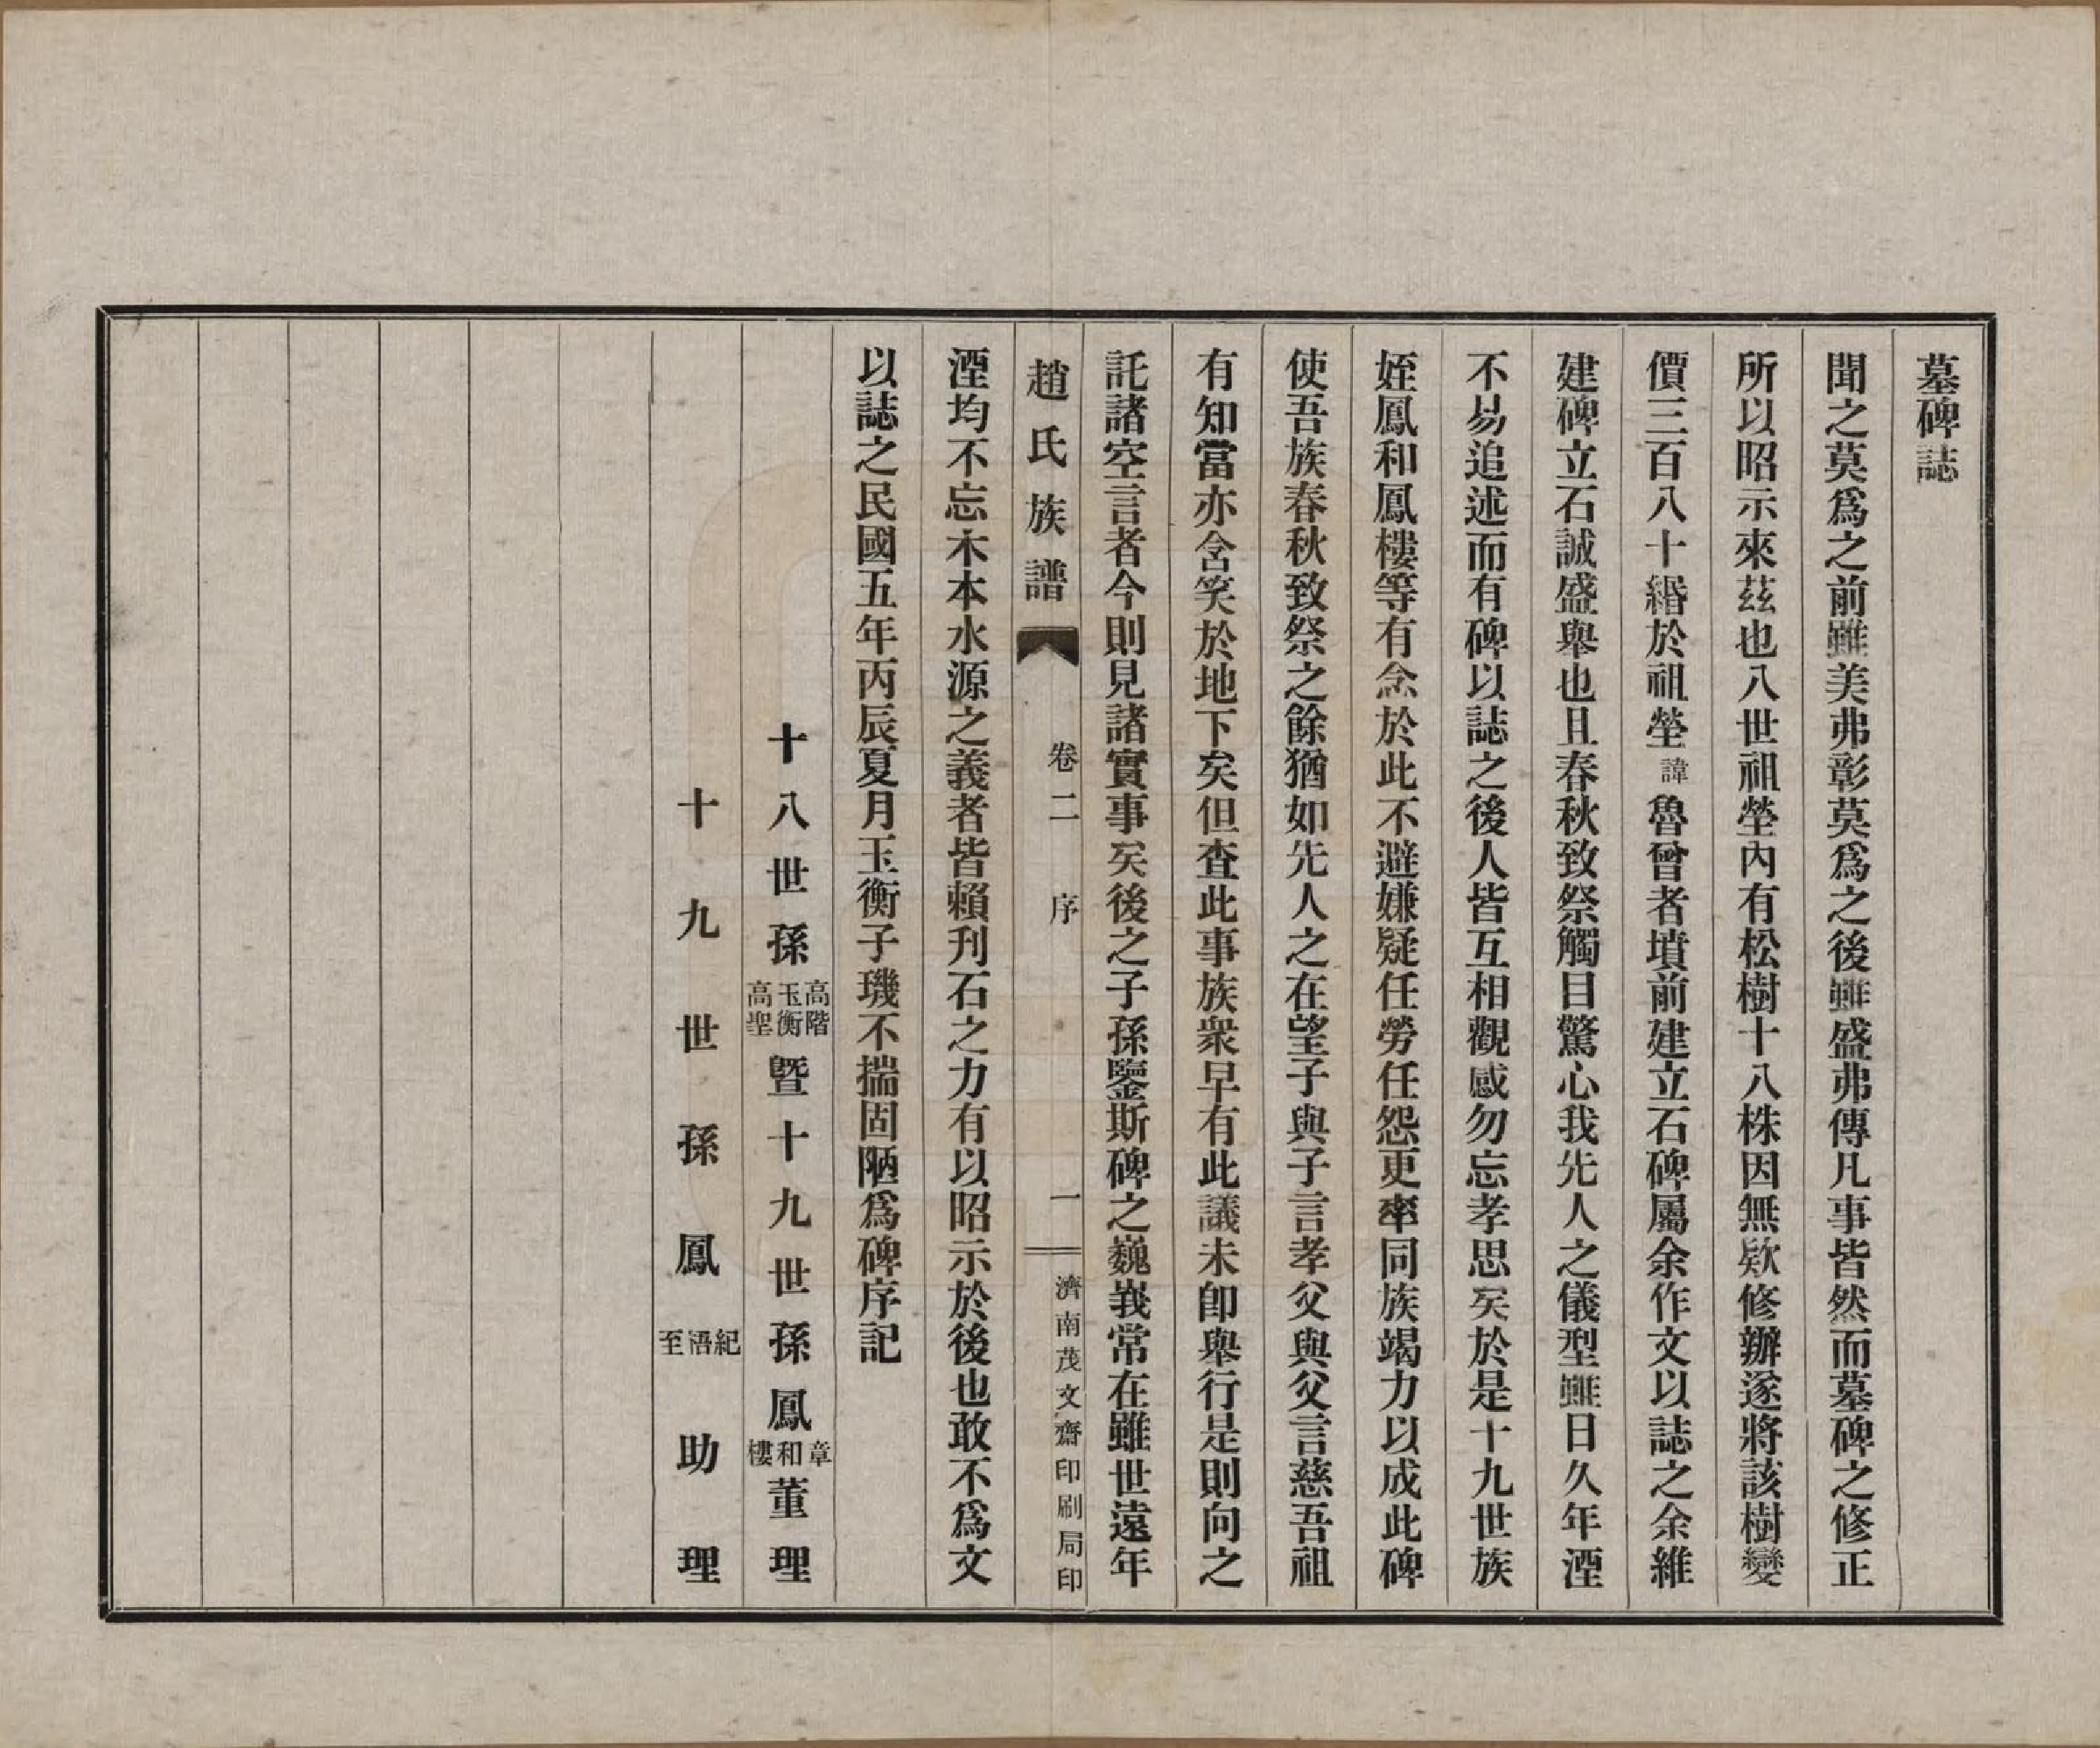 墓碑誌
聞之莫爲之前雖美弗彰莫爲之後雖盛弗傳凡事皆然而墓碑之修正
所以昭示來茲也八世祖塋內有松樹十八株因無欵修辦遂將該樹變
價三百八十緡於祖塋諱魯曾者墳前建立石碑屬余作文以誌之余維
建碑立石誠盛舉也且春秋致祭觸目驚心我先人之儀型雖日久年湮
不易追述而有碑以誌之後人皆互相觀感勿忘孝思矣於是十九世族
姪鳳和鳳樓等有念於此不避嫌疑任勞任怨更率同族竭力以成此碑
使吾族春秋致祭之餘猶如先人之在望子與子言孝父與父言慈吾祖
有知當亦含笑於地下矣但查此事族衆早有此議未卽舉行是則向之
託諸空言者今則見諸實事矣後之子孫鑒斯碑之巍峩常在雖世遠年
趙氏族譜 卷二 序 一 濟南茂文齋印刷局印
湮均不忘木本水源之義者皆賴刋石之力有以昭示於後也敢不爲文
以誌之民國五年丙辰夏月玉衡子璣不揣固陋爲碑序記
十八世孫高階玉衡高聖暨十九世孫鳳章和樓董理
十九世孫鳳紀語至助理